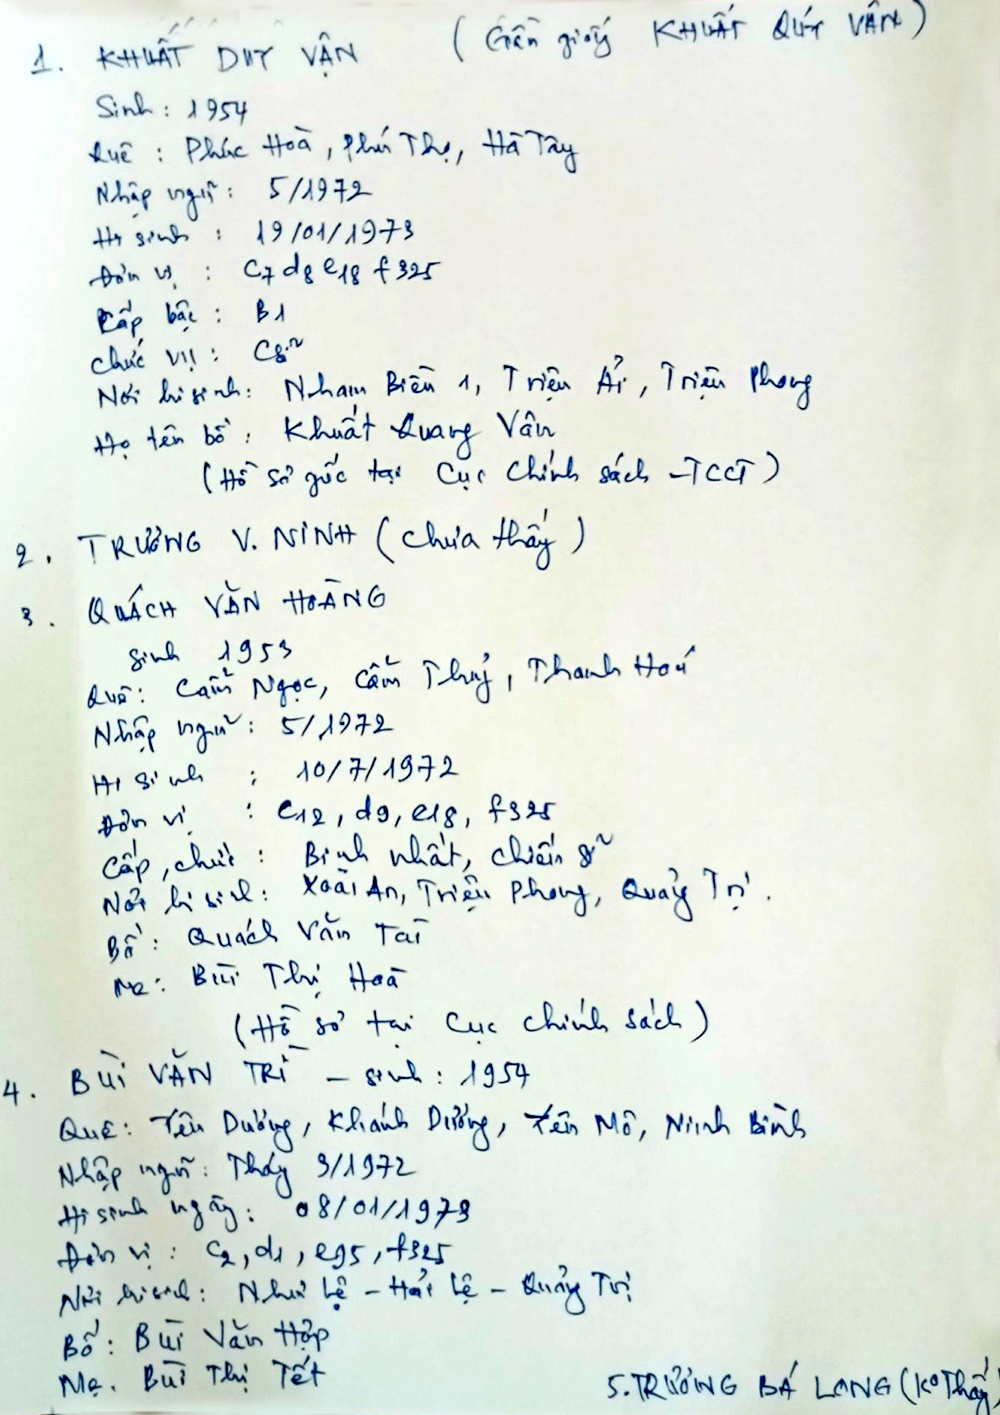 1. KHUẤT DUY VẬN (Gần giống KHUẤT QUÝ VÂN)
Sinh: 1954
Quê: Phúc Hoà, Phú Thọ, Hà Tây
Nhập ngũ: 5/1972
Hi sinh: 19/01/1973
Đơn vị: C7 d8 e18 f325
Cấp bậc: B1
Chức vụ: Csĩ
Nơi hi sinh: Nham Biền 1, Triệu Ái, Triệu Phong
Họ tên bố: Khuất Quang Vân
(Hồ sơ gốc tại Cục Chính sách - TCCT)
2. TRƯƠNG V. NINH (chưa thấy)
3. QUÁCH VĂN HOÀNG
Sinh 1953
Quê: Cẩm Ngọc, Cẩm Thuỷ, Thanh Hoá
Nhập ngũ: 5/1972
Hi sinh: 10/7/1972
Đơn vị: C12, d9, e18, f325
Cấp, chức: Binh nhất, chiến sĩ
Nơi hi sinh: Xoài An, Triệu Phong, Quảng Trị.
Bố: Quách Văn Tài
Mẹ: Bùi Thị Hoà
(Hồ sơ tại Cục Chính sách)
4. BÙI VĂN TRĨ - sinh: 1954
Quê: Yên Dương, Khánh Dương, Yên Mô, Ninh Bình
Nhập ngũ: Tháng 9/1972
Hi sinh ngày: 08/01/1973
Đơn vị: C2, d1, e95, f325
Nơi hi sinh: Như Lệ - Hải Lệ - Quảng Trị
Bố: Bùi Văn Hợp
Mẹ. Bùi Thị Tết
5. TRƯƠNG BÁ LONG (Ko Thấy)